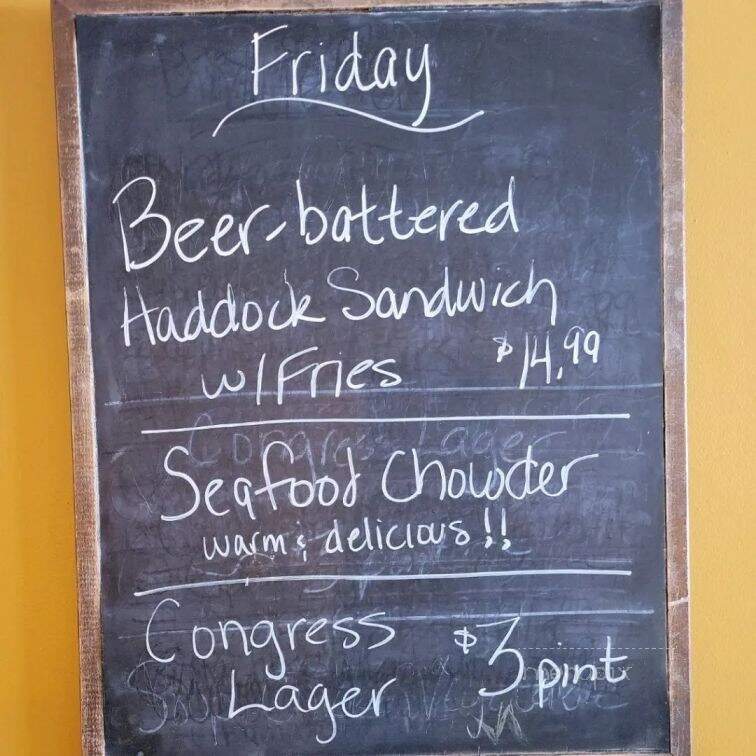 Friday
Beer-battered
Haddock Sandwich
w/Fries $14.99
Seafood Chowder
warm & delicious!!
Congress $3 pint
Lager